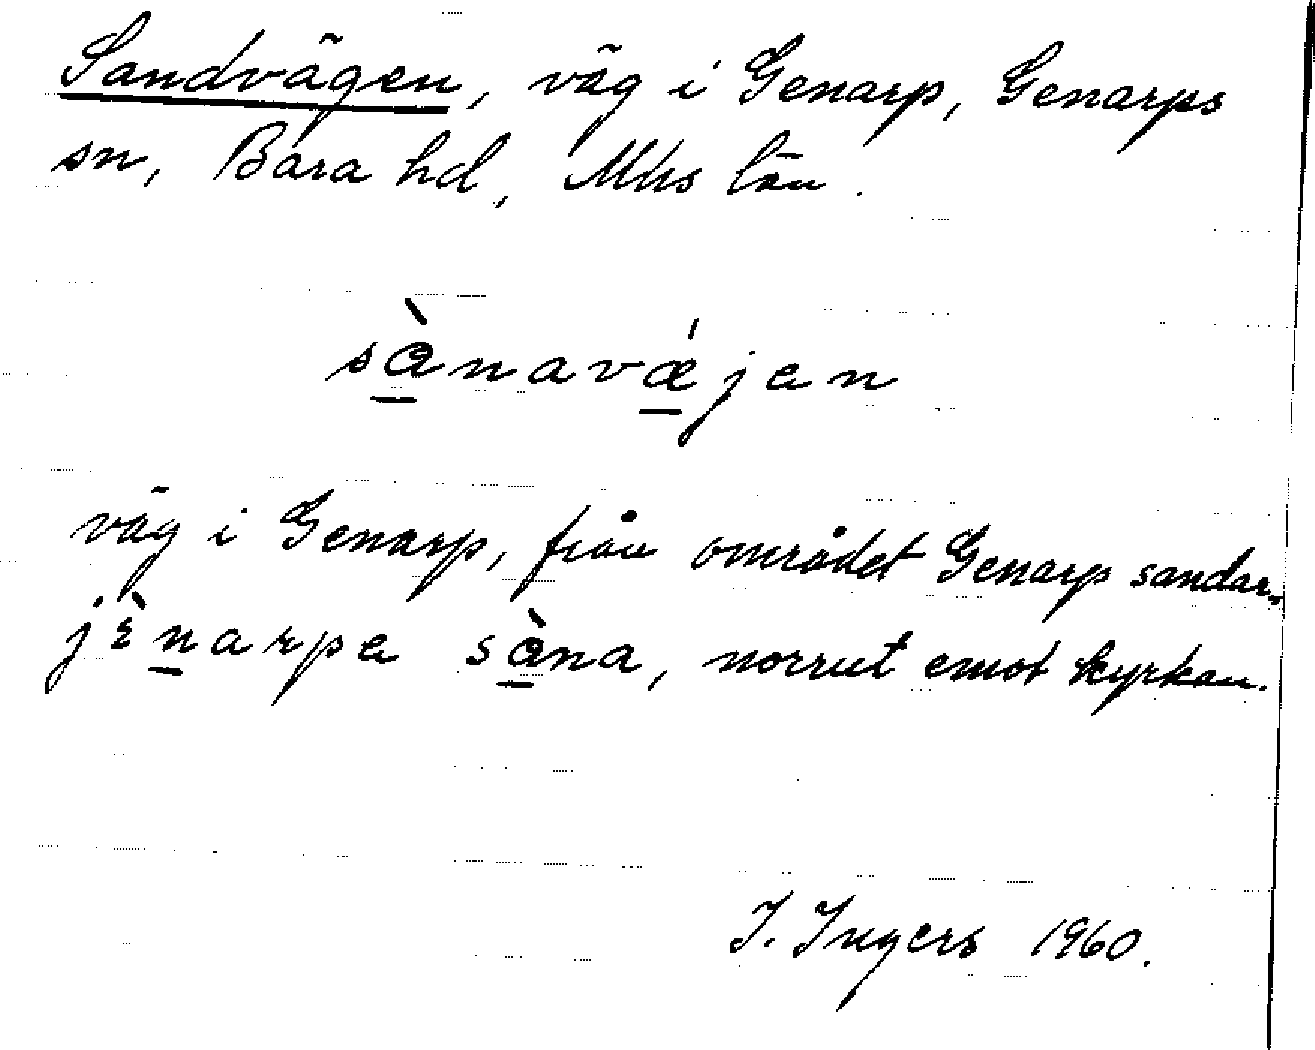 Sandvägen, väg i Genarp, Genarps
sn, Bara hd, Mhs län.
sànavǽjen
väg i Genarp, från området Genarp sandar,
jὲnarpa sàna, norrut emot kyrkan.
I. Ingers 1960.